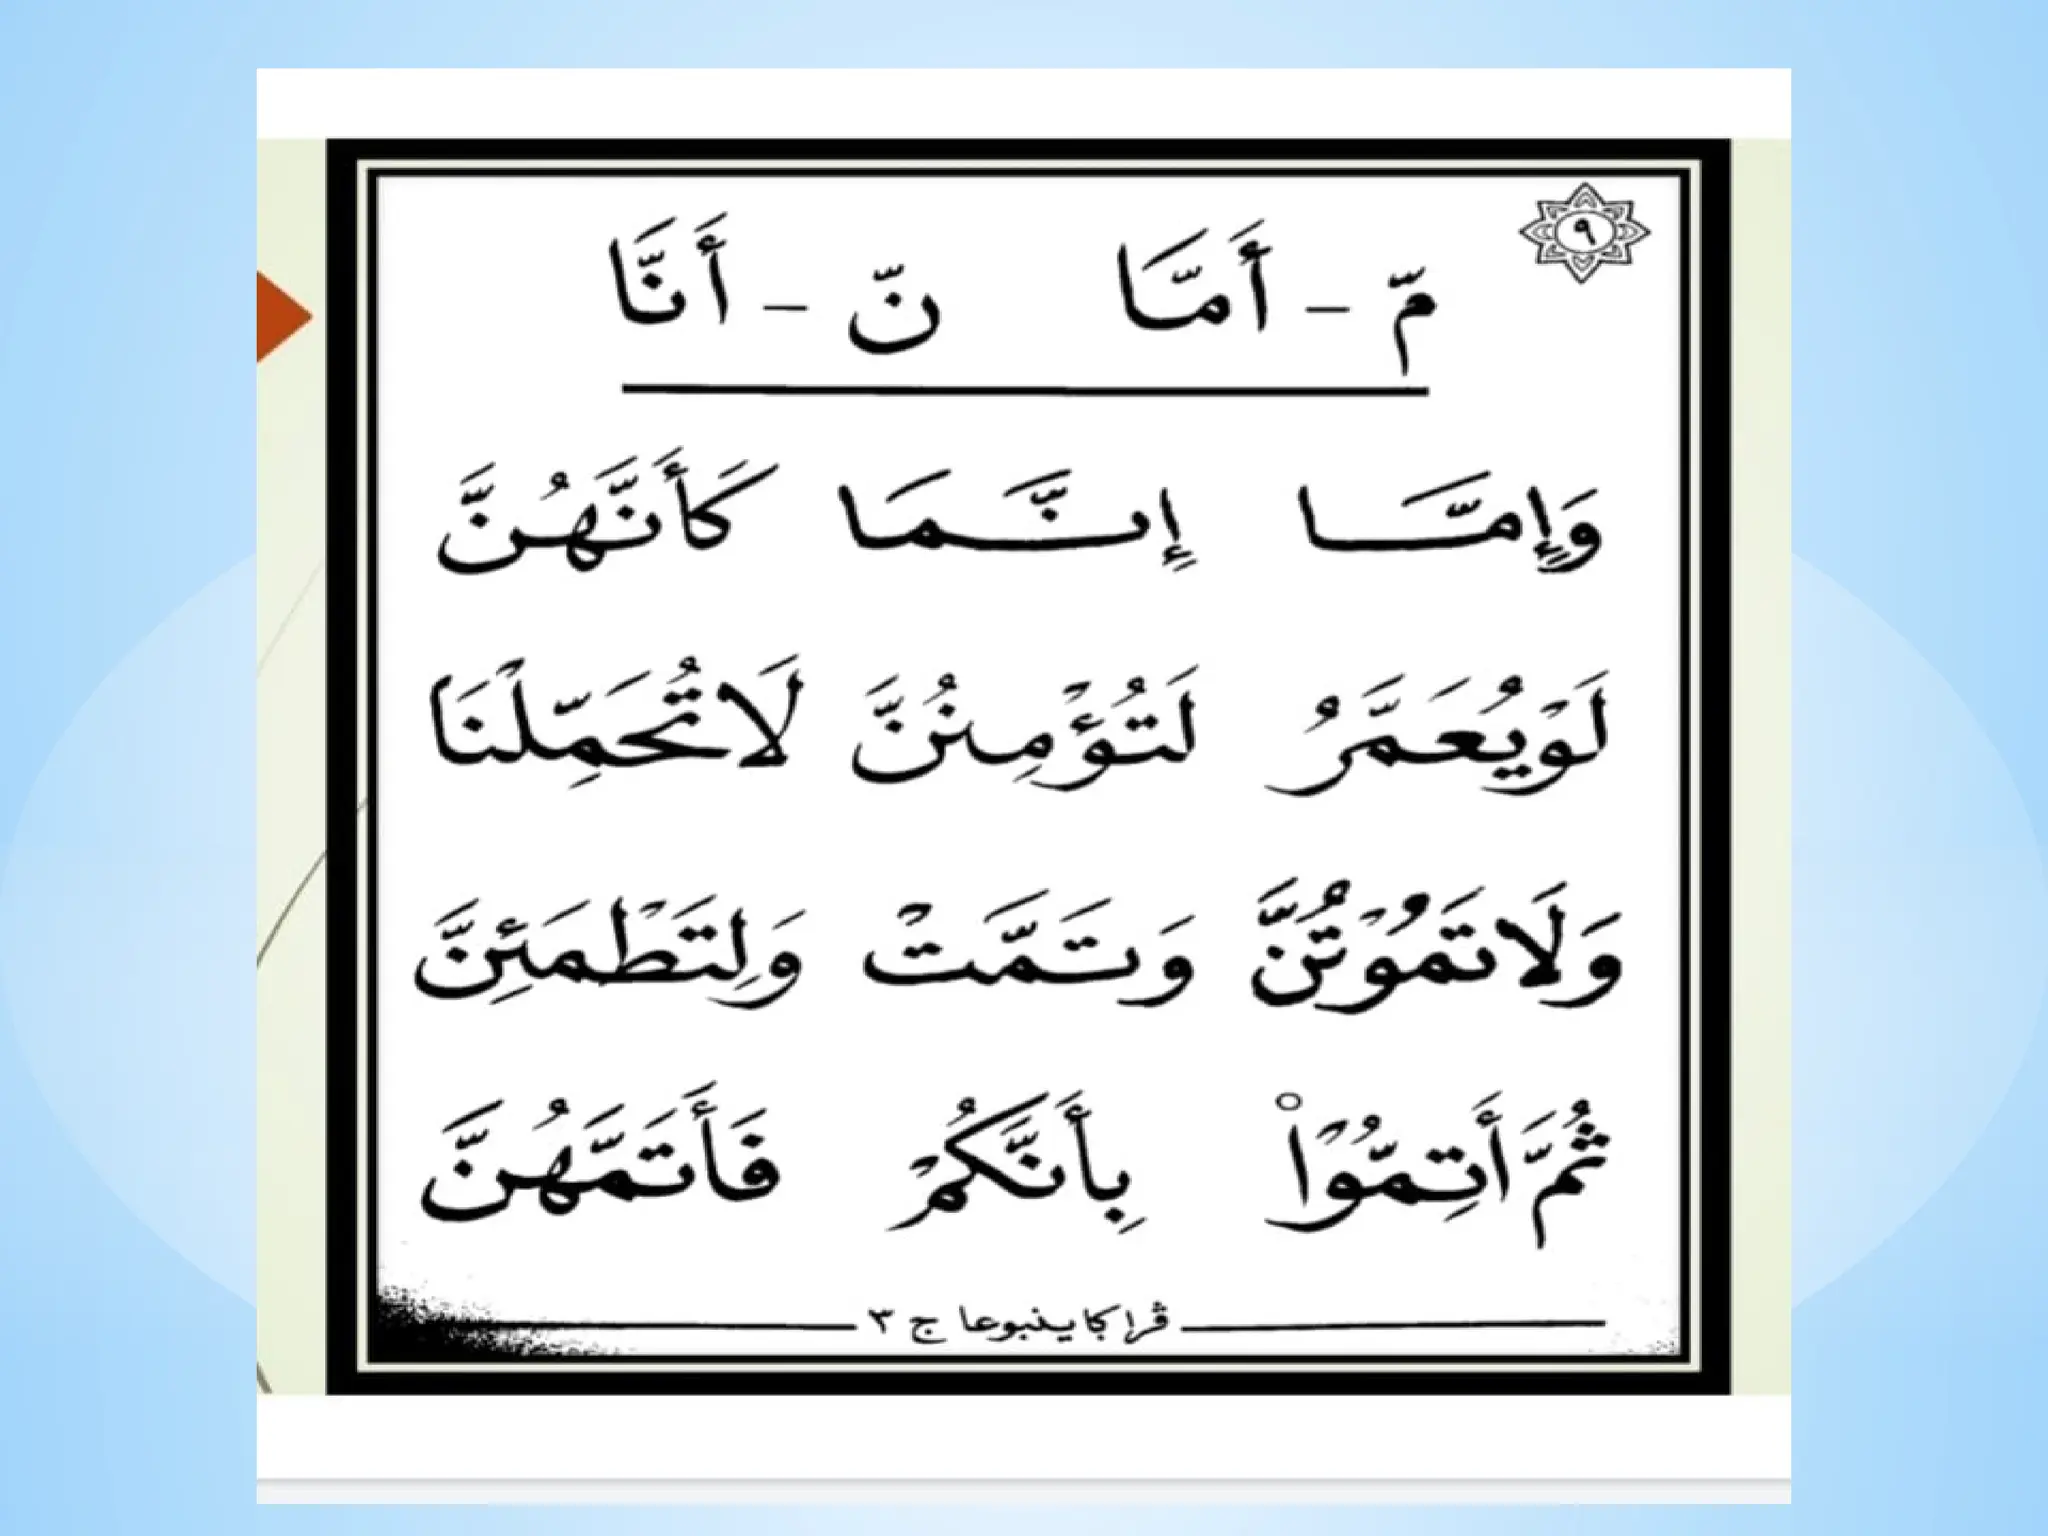 ٩
مّ - أَمَّا نّ - أَنَّا
وَإِمَّا إِنَّمَا كَأَنَّهُنَّ
لَوْيُعَمَّرُ لَتُؤْمِنُنَّ لَاتُحَمِّلْنَا
وَلَاتَمُوْتُنَّ وَتَمَّتْ وَلِتَطْمَئِنَّ
ثُمَّ أَتِمُّوْا۟ بِأَنَّكُمْ فَأَتَمَّهُنَّ
ڤراكايــنبوعا ج ٣